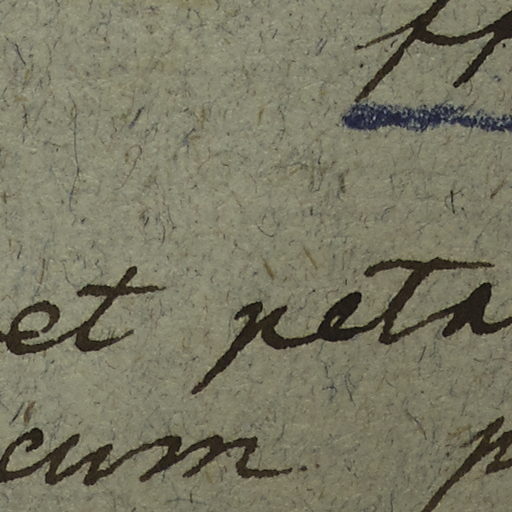 et peta
cum p